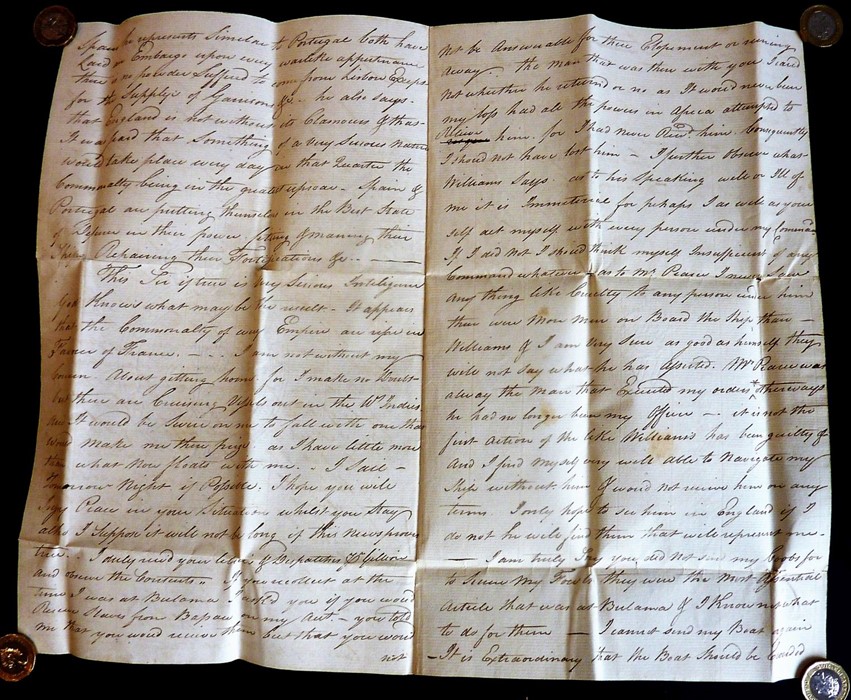 Spain he represents Similar to Portugal both have
Laid an Embargo upon every warlike appearance
there is no powder Suffer'd to come from Lisbon Except
for the Supply's of Garrisons &c. he also says.
that England is not without its Clamours & that
It was said that Something of a very Serious nature
would take place every day in that Quarter the
Commonalty being in the greatest uproar - Spain &
Portugal are putting themselves in the Best State
of Defence in their power fitting & manning their
Ships Repairing their Fortifications &c. -
This Sir if true is very Serious Inteligence
God Knows what may be the result - It appears
that the Commonalty of every Empire are up in
Favor of France. - . . I am not without my
about getting home for I make no Doubt
but there are Cruising Vessels out in the Wt. Indies
It would be Severe on me to fall with one that
would make me their prize as I have little more
than what Now floats with me. - I Sail -
tomorrow Night if Possible. I hope you will
Enjoy Peace in your Situation whilst you Stay
altho I Suppose it will not be long if this News proves
true. - I duly recd your letters & Despatches
and observe the Contents " If you recollect at the
time I was at Bulama I asked you if you would
Receive Slaves from Bapaw on my Act. - you told
me that you would receive them but that you would
not
not be Answerable for their Elopement or runing
away. the man that was then with you I cared
not whether he returnd or no as It would never been
my loss had all the powers in Africa attempted to
Relieve him. for I had never Recd. him. Consiquently
I should not have lost him - I further Observe what
Williams Says. as to his Speaking well or Ill of
me it is Immaterial for perhaps I as well as your
self act myself with every person under my Command
If I did not I should think myself Insufficient of any
Command whatever - as to Mr. Pearce I never Saw
any thing like Cruelty to any person under him
their were More Men on Board the Ship than -
Williams & I am Very Sure as good as himself they
will not Say what he has Asserted. Mr. Pearce was
always the man that Executed my orders otherways
he had no longer been my Officer - it is not the
first action of the like Williams has been guilty of
And I find myself very well able to Navigate my
Ship without him & would not receive him on any
terms. I only hope to see him in England if I
do not he will find them that will represent me -
- I am truly Sory you did not send my Coobs for
to Secure my Fowls they were the Most Essential
Article that was at Bulama & I Know not what
to do for them - I cannot send my Boat again
- It is Extraordinary that the Boat Should be loaded